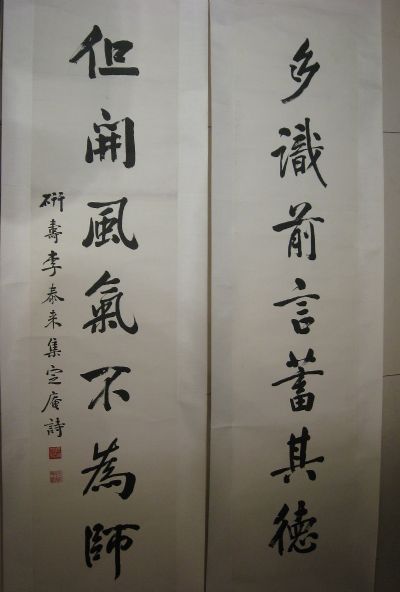 多識前言蓄其德
但開風氣不為師
研壽李泰来集定庵詩